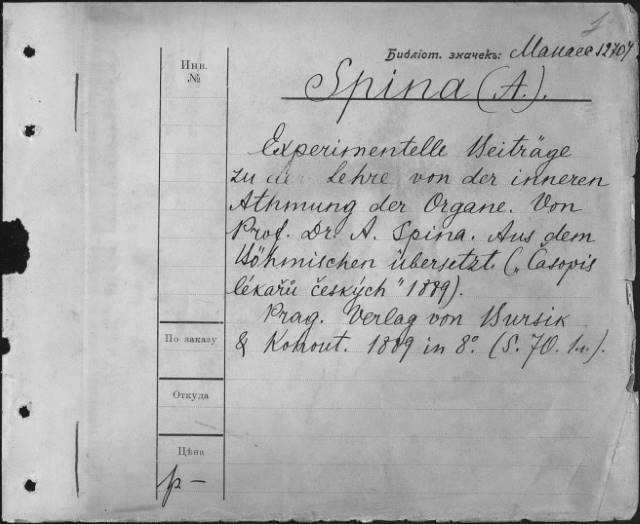 1
Библіот. значекъ: Манасе 12707
Инв.
№
Spina (A.).
Experimentelle Beiträge
zu der Lehre von der inneren
Athmung der Organe. Von
Prof. Dr. A. Spina. Aus dem
Böhmischen übersetzt. („Časopis
lékařů českých" 1889).
Prag. Verlag von Bursik
& Kohout. 1889 in 8°. (S. 70.
По заказу
Откуда
Цѣна
р –